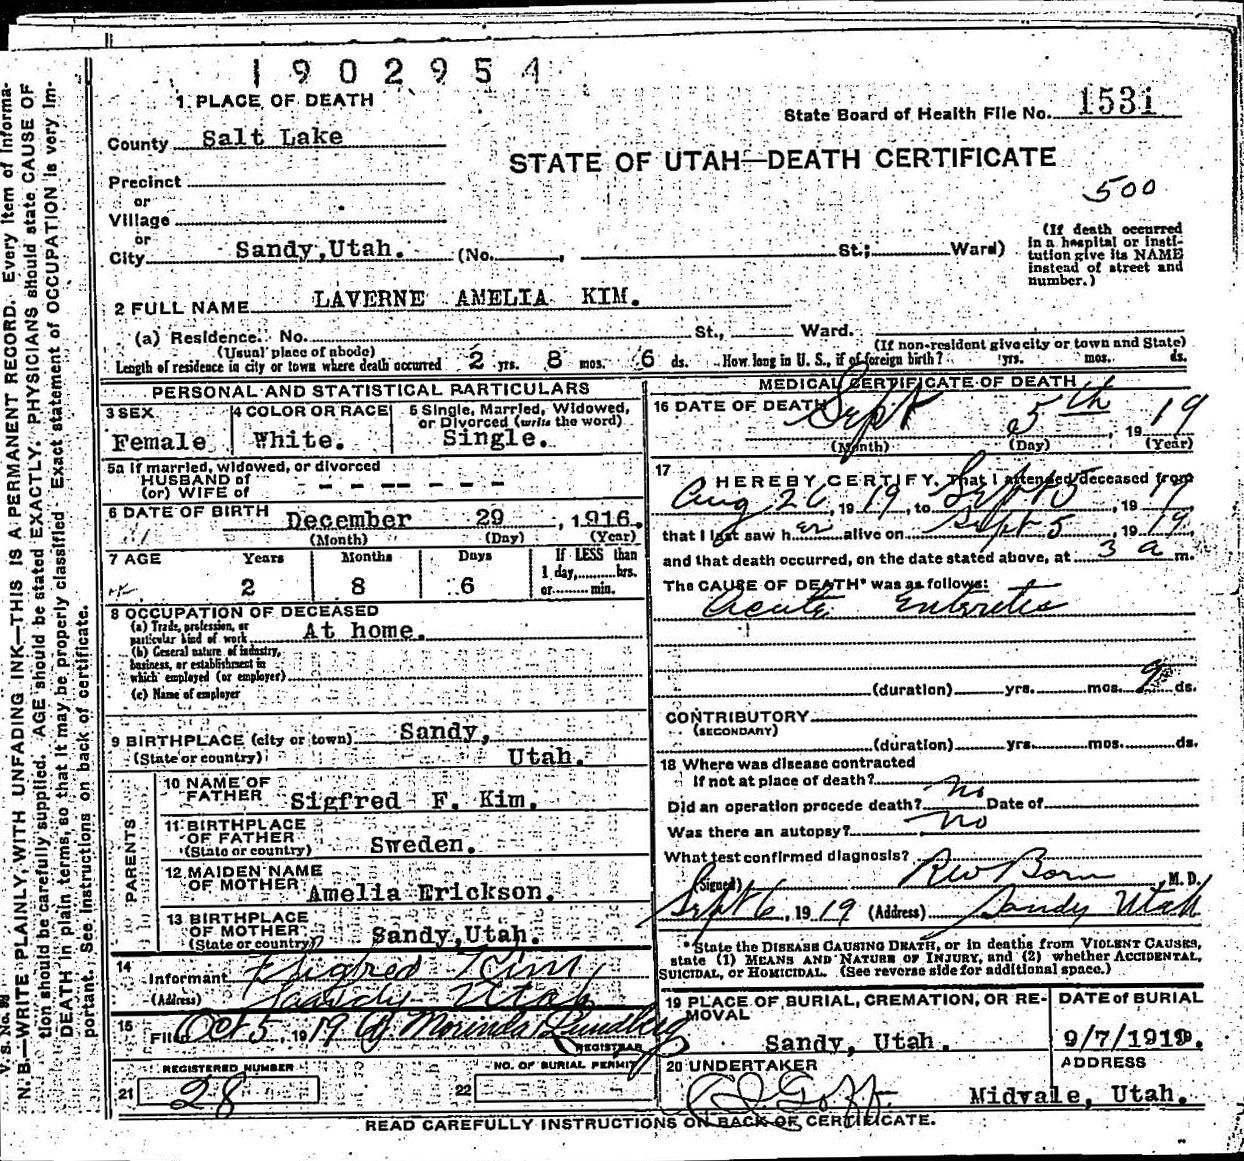 1902954
1 PLACE OF DEATH
State Board of Health File No. 1531
County Salt Lake
STATE OF UTAH—DEATH CERTIFICATE
Precinct
500
or
Village
or
City Sandy, Utah. (No. , St.; Ward)
(If death occurred in a hospital or insti-
tution give its NAME
instead of street and
number.)
2 FULL NAME LAVERNE AMELIA KIM.
(a) Residence. No. St., Ward.
(Usual place of abode) (If non-resident give city or town and State)
Length of residence in city or town where death occurred 2 yrs. 8 mos. 6 ds. How long in U. S., if of foreign birth? yrs. mos. ds.
PERSONAL AND STATISTICAL PARTICULARS
3 SEX
Female
4 COLOR OR RACE
White.
5 Single, Married, Widowed,
or Divorced (write the word)
Single.
5a If married, widowed, or divorced
HUSBAND of
(or) WIFE of - - - - - - -
6 DATE OF BIRTH December 29 , 1916.
(Month) (Day) (Year)
7 AGE Years Months Days If LESS than
1 day,.....hrs.
2 8 6 or.....min.
8 OCCUPATION OF DECEASED
(a) Trade, profession, or
particular kind of work At home.
(b) General nature of industry,
business, or establishment in
which employed (or employer)
(c) Name of employer
9 BIRTHPLACE (city or town) Sandy,
(State or country) Utah.
PARENTS
10 NAME OF
FATHER Sigfred F. Kim.
11 BIRTHPLACE
OF FATHER
(State or country) Sweden.
12 MAIDEN NAME
OF MOTHER Amelia Erickson.
13 BIRTHPLACE
OF MOTHER
(State or country) Sandy, Utah.
14
Informant Sigfred Kim,
(Address) Sandy Utah
15
Filed Oct 5, 1919 Morinda Lundberg
REGISTRAR
REGISTERED NUMBER
21 28
NO. OF BURIAL PERMIT
22
MEDICAL CERTIFICATE OF DEATH
16 DATE OF DEATH Sept 5th , 1919
(Month) (Day) (Year)
17 HEREBY CERTIFY, That I attended deceased from
Aug 26, 1919, to Sept 5, 1919
that I last saw her alive on Sept 5, 1919,
and that death occurred, on the date stated above, at 3 a m.
The CAUSE OF DEATH* was as follows:
Acute Enteretis
(duration) yrs. mos. 9 ds.
CONTRIBUTORY
(SECONDARY)
(duration) yrs. mos. ds.
18 Where was disease contracted
If not at place of death?
Did an operation precede death? No Date of
Was there an autopsy? No
What test confirmed diagnosis?
(Signed) Born M. D.
Sept 6, 1919 (Address) Sandy Utah
*State the DISEASE CAUSING DEATH, or in deaths from VIOLENT CAUSES,
state (1) MEANS AND NATURE OF INJURY, and (2) whether ACCIDENTAL,
SUICIDAL, or HOMICIDAL. (See reverse side for additional space.)
19 PLACE OF BURIAL, CREMATION, OR RE-
MOVAL
Sandy, Utah.
DATE of BURIAL
9/7/1919.
20 UNDERTAKER
Goff
ADDRESS
Midvale, Utah.
READ CAREFULLY INSTRUCTIONS ON BACK OF CERTIFICATE.
V. S. No.
N. B.—WRITE PLAINLY, WITH UNFADING INK—THIS IS A PERMANENT RECORD. Every item of informa-
tion should be carefully supplied. AGE should be stated EXACTLY. PHYSICIANS should state CAUSE OF
DEATH in plain terms, so that it may be properly classified. Exact statement of OCCUPATION is very im-
portant. See instructions on back of certificate.